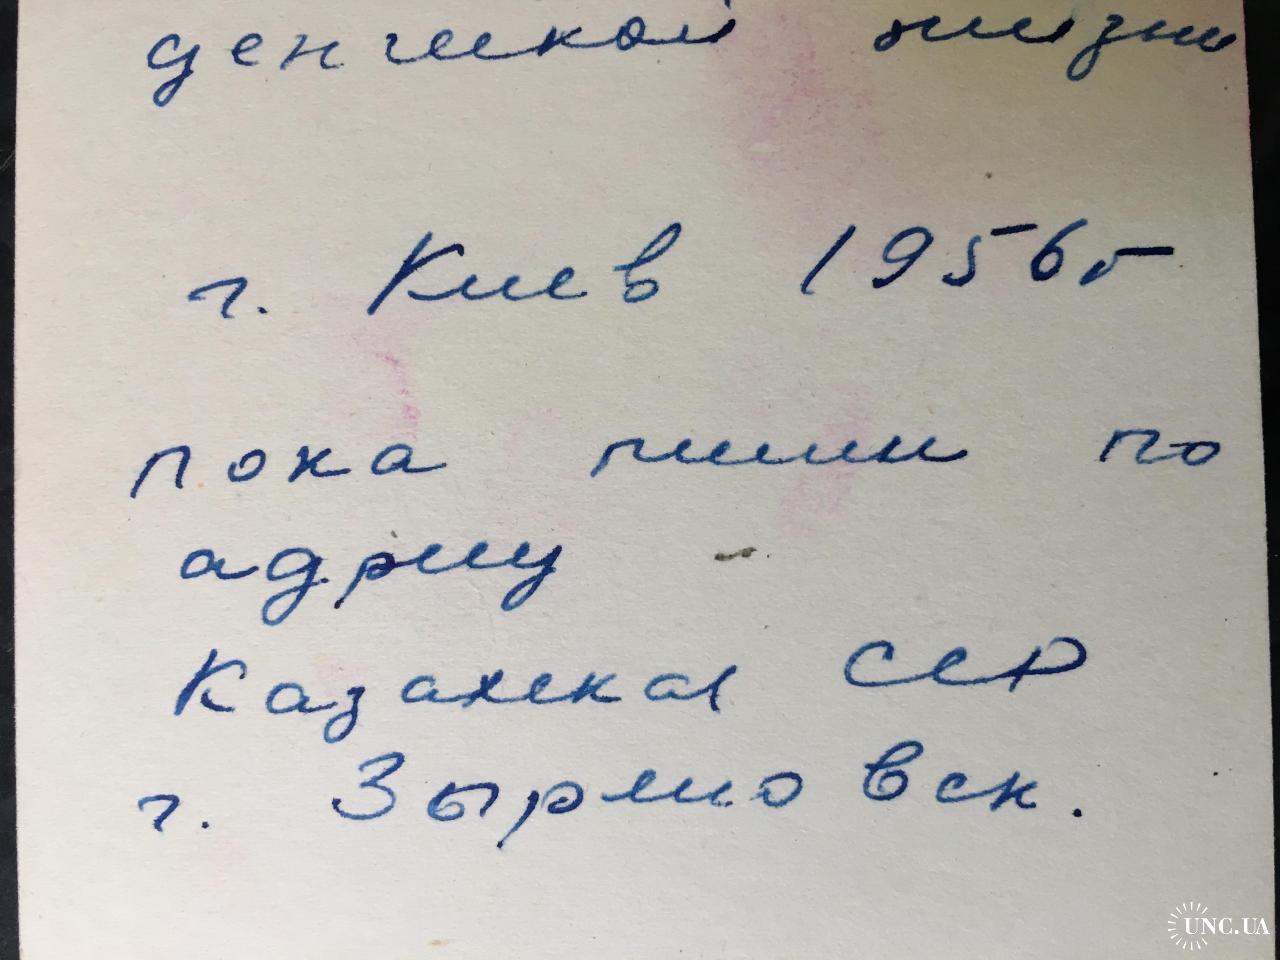 денческой жизни
г. Киев 1956г
пока пиши по
адресу
Казахская ССР
г. Зыряновск.
UNC.UA